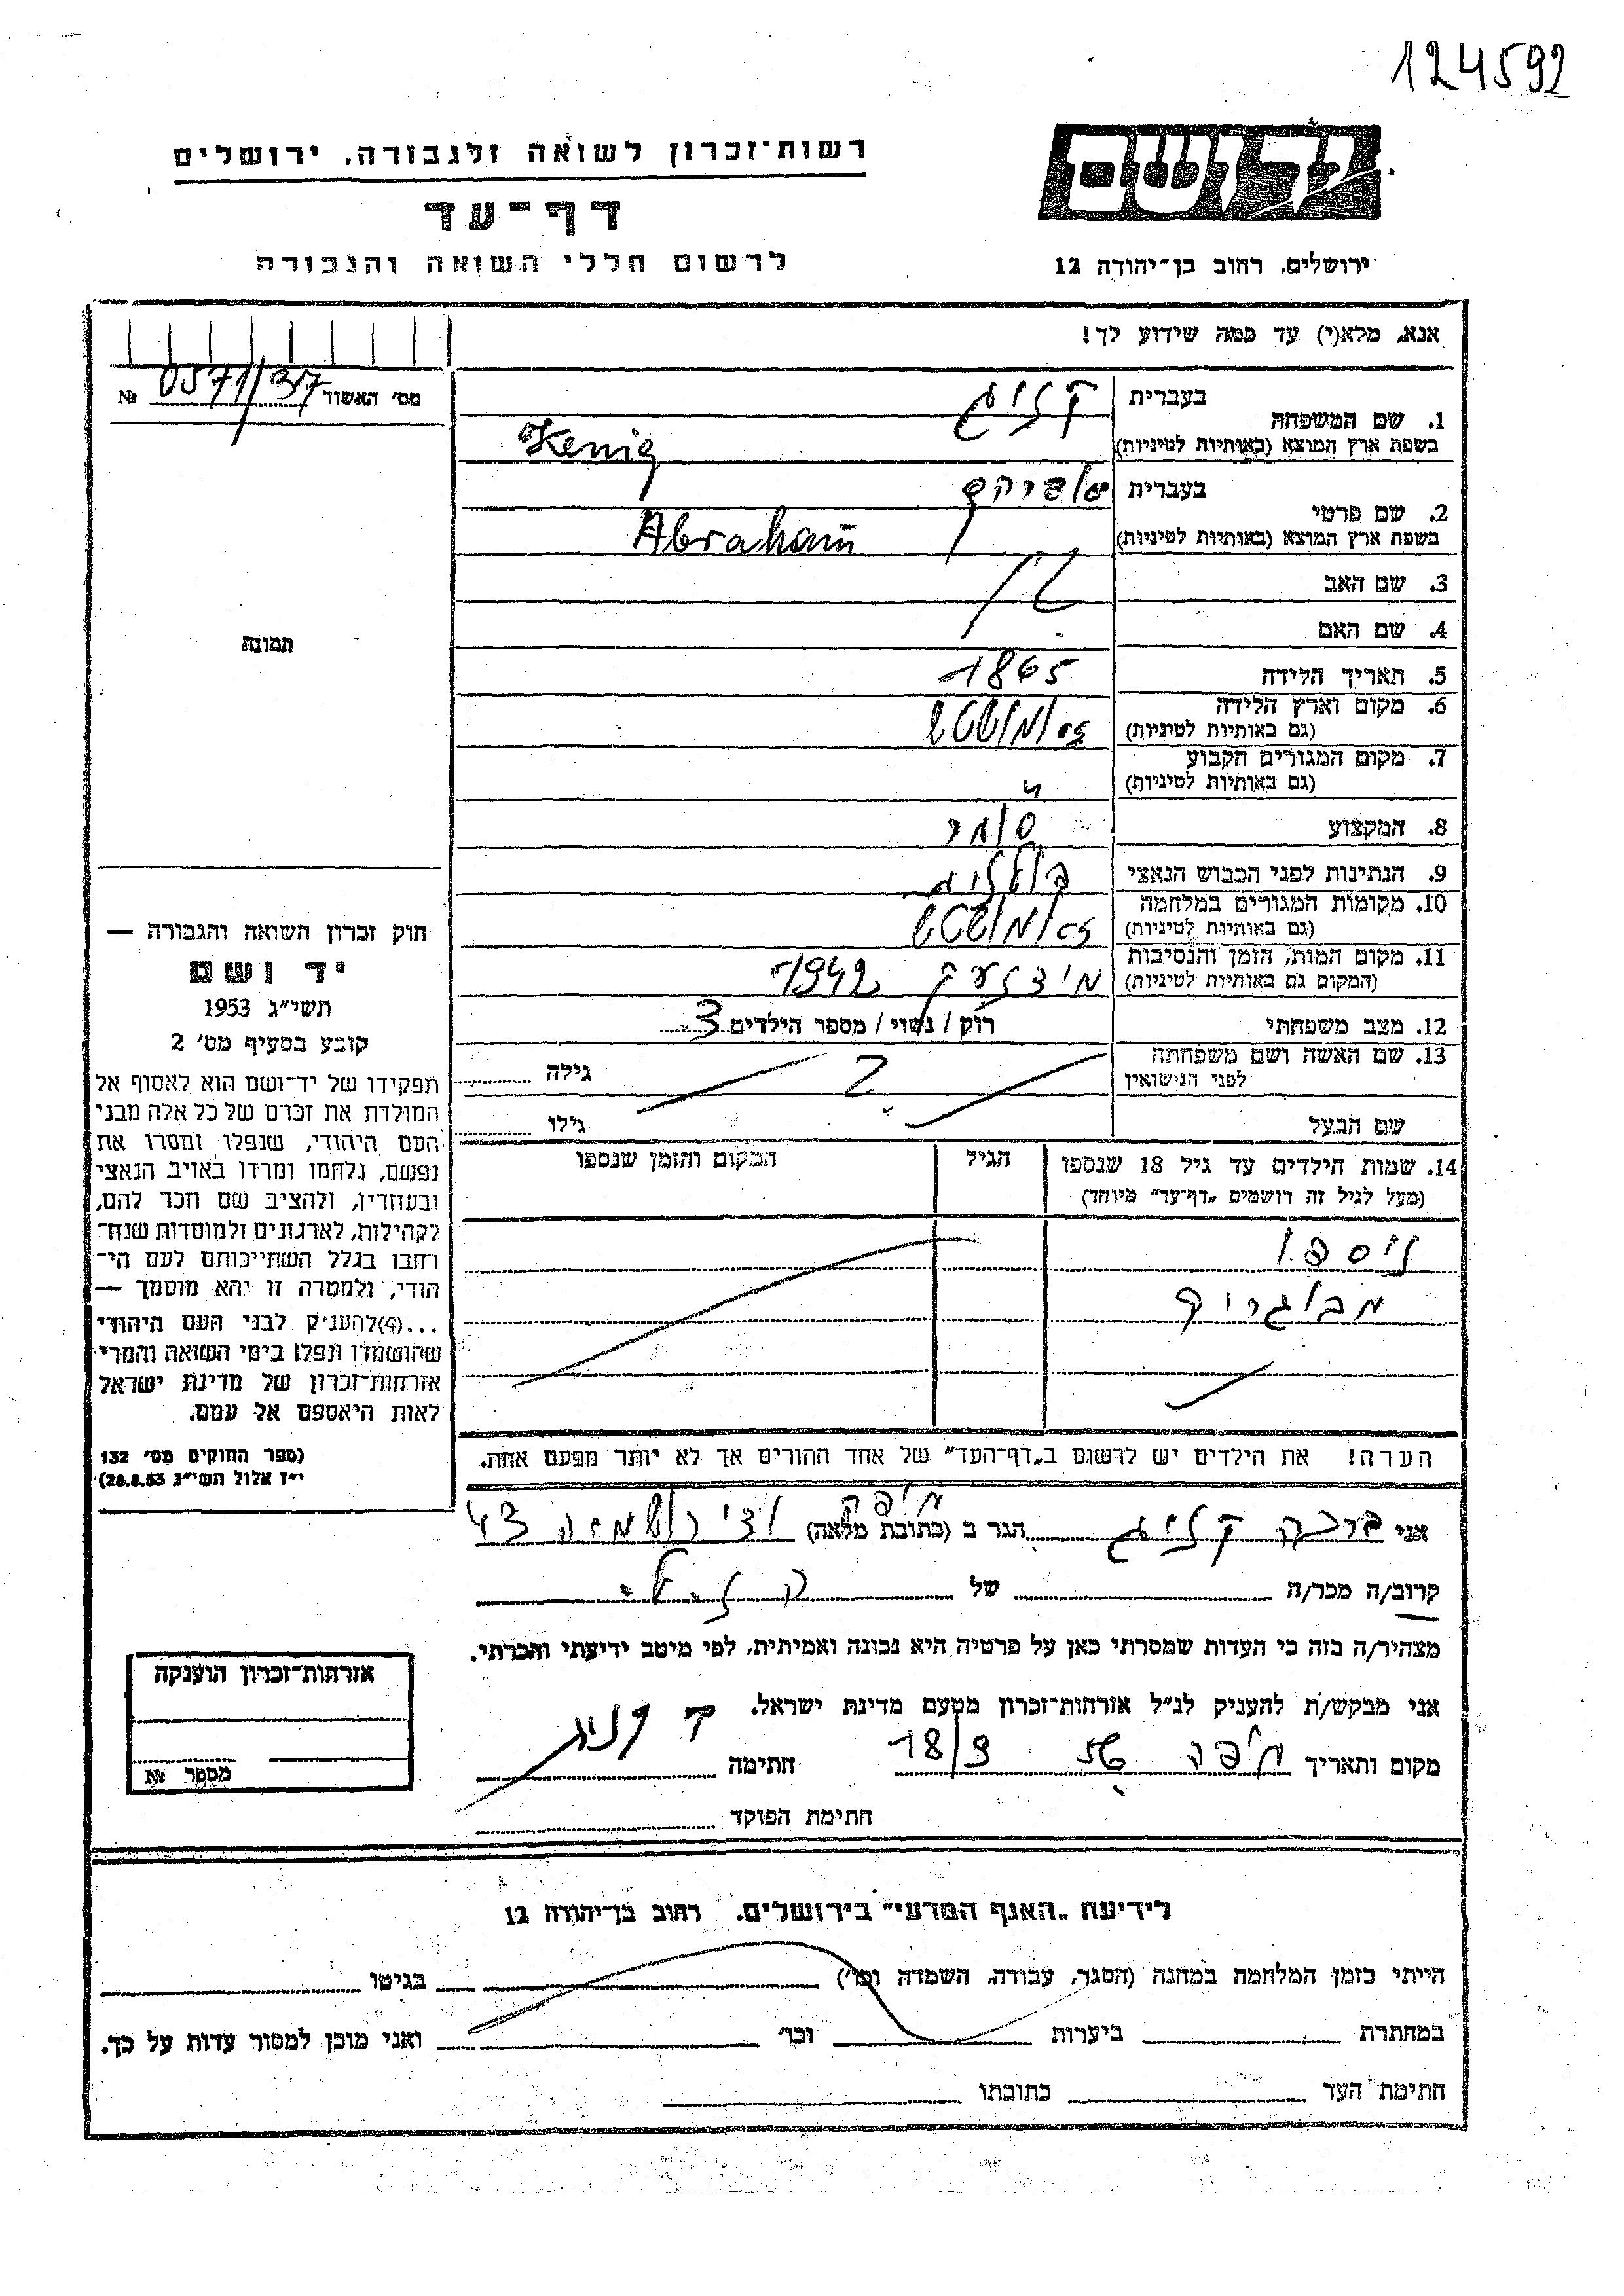 124592
רשות־זכרון לשואה ולגבורה, ירושלים
דף־עד
לרשום חללי השואה והגבורה
יד ושם
ירושלים, רחוב בן־יהודה 12
אנא, מלא(י) עד כמה שידוע לך!
מס' האשור 0571/37 №
תמונה
1. שם המשפחה
בעברית קניג
בשפת ארץ המוצא (באותיות לטיניות) Kenig
2. שם פרטי
בעברית
בשפת ארץ המוצא (באותיות לטיניות) Abraham
3. שם האב
4. שם האם
5. תאריך הלידה 1865
6. מקום וארץ הלידה
(גם באותיות לטיניות)
7. מקום המגורים הקבוע
(גם באותיות לטיניות) "
8. המקצוע סוחר
9. הנתינות לפני הכבוש הנאצי פולנית
10. מקומות המגורים במלחמה
(גם באותיות לטיניות)
11. מקום המות, הזמן והנסיבות
(המקום גם באותיות לטיניות) 1942
12. מצב משפחתי רוק / נשוי / מספר הילדים 3
13. שם האשה ושם משפחתה
לפני הנישואין ? גילה
שם הבעל גילו
14. שמות הילדים עד גיל 18 שנספו
(מעל לגיל זה רושמים „דף־עד" מיוחד)
הגיל
המקום והזמן שנספו
ניספו
מבוגרים
הערה! את הילדים יש לרשום ב„דף־העד" של אחד ההורים אך לא יותר מפעם אחת.
חוק זכרון השואה והגבורה —
יד ושם
תשי"ג 1953
קובע בסעיף מס' 2
תפקידו של יד־ושם הוא לאסוף אל
המולדת את זכרם של כל אלה מבני
העם היהודי, שנפלו ומסרו את
נפשם, נלחמו ומרדו באויב הנאצי
ובעוזריו, ולהציב שם וזכר להם,
לקהילות, לארגונים ולמוסדות שנח־
רבו בגלל השתייכותם לעם הי־
הודי, ולמטרה זו יהא מוסמך —
...(4)להעניק לבני העם היהודי
שהושמדו ונפלו בימי השואה והמרי
אזרחות־זכרון של מדינת ישראל
לאות היאספם אל עמם.
(ספר החוקים מס' 132
י"ז אלול תשי"ג 28.8.53)
אני ברכה קניג הגר ב (כתובת מלאה) חיפה 43
קרוב/ה מכר/ה של
מצהיר/ה בזה כי העדות שמסרתי כאן על פרטיה היא נכונה ואמיתית, לפי מיטב ידיעתי והכרתי.
אני מבקש/ת להעניק לנ"ל אזרחות־זכרון מטעם מדינת ישראל.
מקום ותאריך חיפה 18/9 חתימה ק קניג
חתימת הפוקד
אזרחות־זכרון הוענקה
מספר №
לידיעת „האגף המדעי" בירושלים, רחוב בן־יהודה 12
הייתי בזמן המלחמה במחנה (הסגר, עבודה, השמדה וכו') בגיטו
במחתרת ביערות וכו' ואני מוכן למסור עדות על כך.
חתימת העד כתובתו